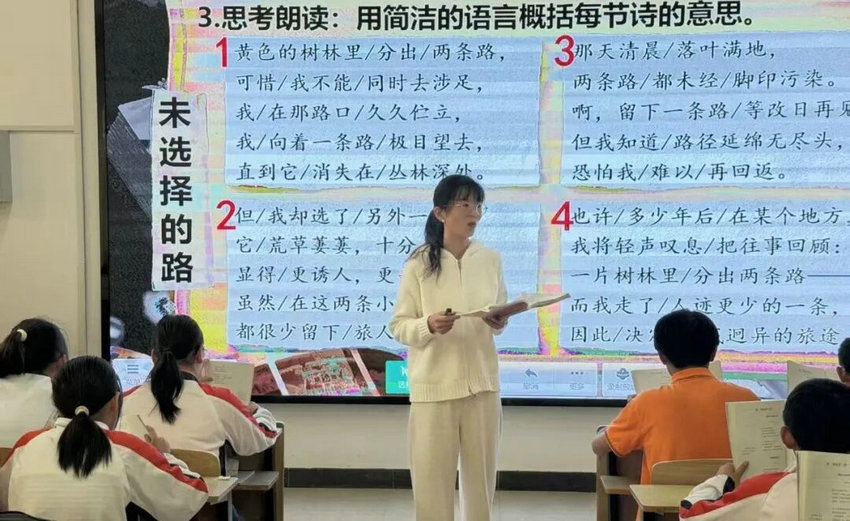 3.思考朗读：用简洁的语言概括每节诗的意思。
未选择的路
1
黄色的树林里/分出/两条路，
可惜/我不能/同时去涉足，
我/在那路口/久久伫立，
我/向着一条路/极目望去，
直到它/消失在/丛林深处。
2
但/我却选了/另外一
它/荒草萋萋，十分
显得/更诱人，更
虽然/在这两条小
都很少留下/旅人
3
那天清晨/落叶满地，
两条路/都未经/脚印污染。
啊，留下一条路/等改日再见
但我知道/路径延绵无尽头，
恐怕我/难以/再回返。
4
也许/多少年后/在某个地方，
我将轻声叹息/把往事回顾：
一片树林里/分出两条路——
而我走了/人迹更少的一条，
因此/决
迥异的旅途